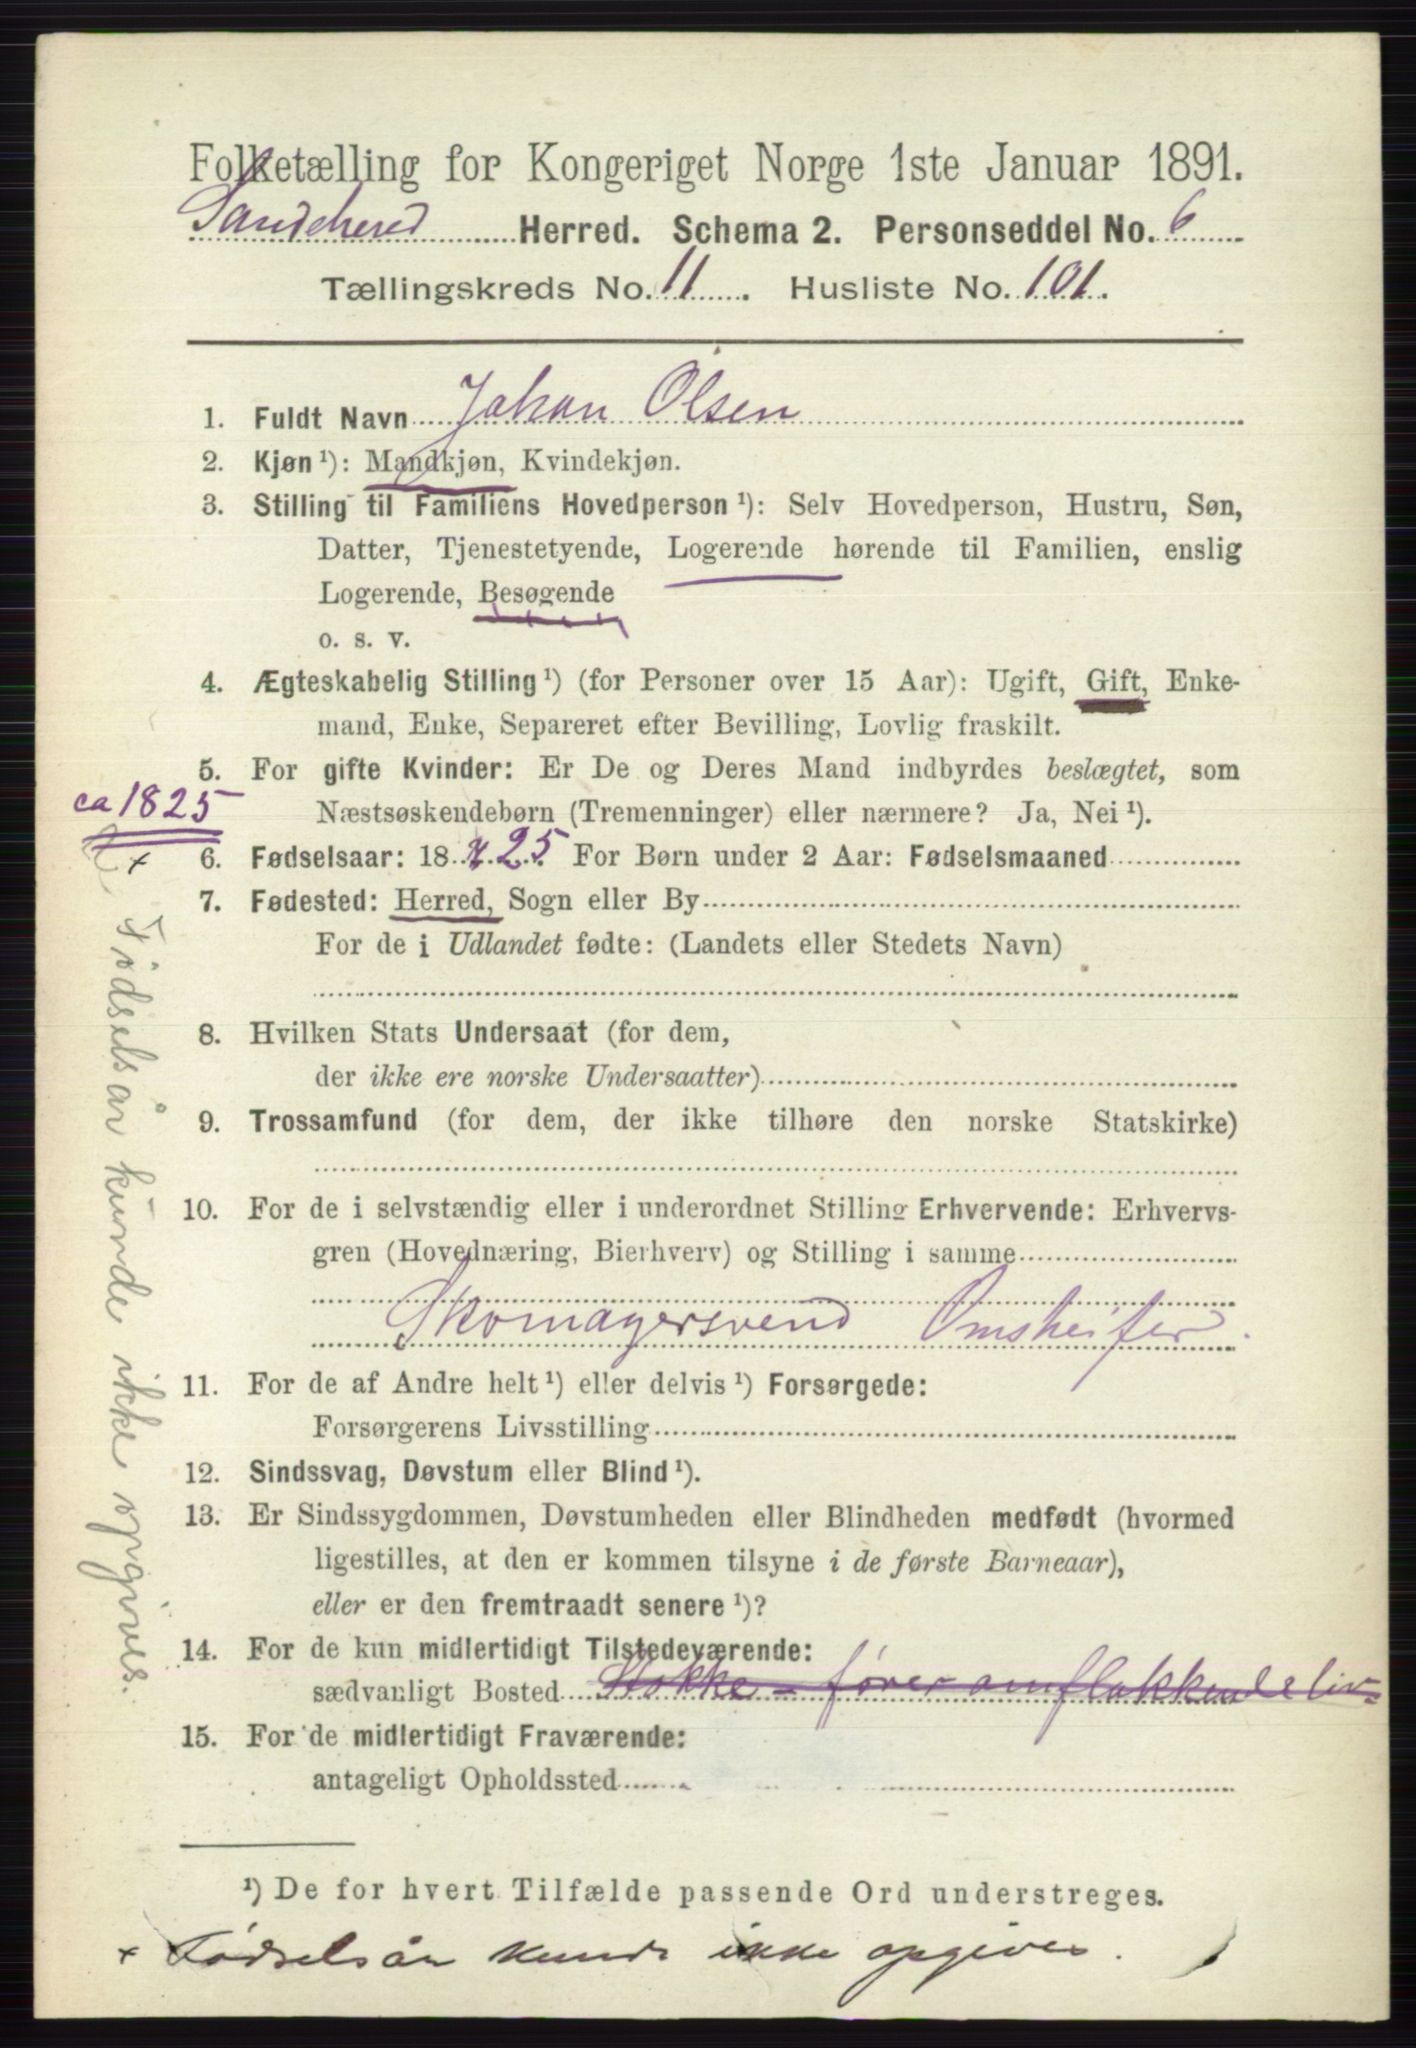 Folketælling for Kongeriget Norge 1ste Januar 1891.
Sandeherred Herred. Schema 2. Personseddel No. 6
Tællingskreds No. 11. Husliste No. 101.
1. Fuldt Navn Johan Olsen
2. Kjøn ¹): Mandkjøn, Kvindekjøn.
3. Stilling til Familiens Hovedperson ¹): Selv Hovedperson, Hustru, Søn,
Datter, Tjenestetyende, Logerende hørende til Familien, enslig
Logerende, Besøgende
o. s. v.
4. Ægteskabelig Stilling ¹) (for Personer over 15 Aar): Ugift, Gift, Enke-
mand, Enke, Separeret efter Bevilling, Lovlig fraskilt.
5. For gifte Kvinder: Er De og Deres Mand indbyrdes beslægtet, som
Næstsøskendebørn (Tremenninger) eller nærmere? Ja, Nei ¹).
ca 1825
+ 6. Fødselsaar: 18 25 For Børn under 2 Aar: Fødselsmaaned
7. Fødested: Herred, Sogn eller By
For de i Udlandet fødte: (Landets eller Stedets Navn)
8. Hvilken Stats Undersaat (for dem,
der ikke ere norske Undersaatter)
9. Trossamfund (for dem, der ikke tilhøre den norske Statskirke)
10. For de i selvstændig eller i underordnet Stilling Erhvervende: Erhvervs-
gren (Hovednæring, Bierhverv) og Stilling i samme
Skomagersvend Omstreifer.
11. For de af Andre helt ¹) eller delvis ¹) Forsørgede:
Forsørgerens Livsstilling
12. Sindssvag, Døvstum eller Blind ¹).
13. Er Sindssygdommen, Døvstumheden eller Blindheden medfødt (hvormed
ligestilles, at den er kommen tilsyne i de første Barneaar),
eller er den fremtraadt senere ¹)?
14. For de kun midlertidigt Tilstedeværende:
sædvanligt Bosted Stokke - fører omflakkende liv
15. For de midlertidigt Fraværende:
antageligt Opholdssted
¹) De for hvert Tilfælde passende Ord understreges.
+ Fødselsår kunde ikke opgives.
Fødselsår kunde ikke opgives.